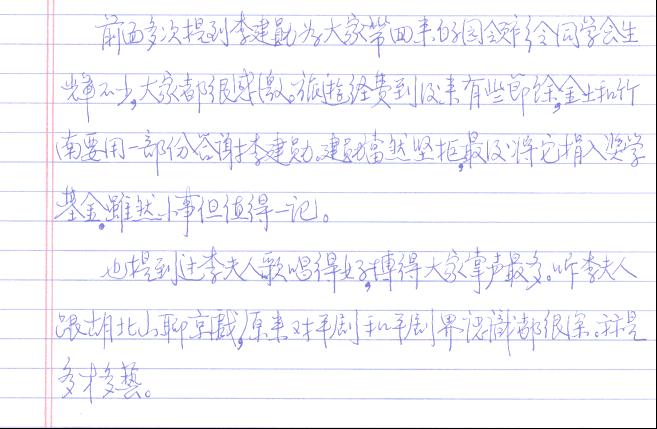 前面多次提到李建勛为大家带回来的国领飾令同学会生
辉不少,大家都很感激。旅遊经费到後来有些節餘,金生和竹
南要用一部份答谢李建勋,建勋當然坚拒,最後将它捐入奨学
基金。雖然小事但值得一记。
也提到过李夫人歌唱得好,博得大家掌声最多。听李夫人
跟胡北山聊京戲,原来对平剧和平剧界認識都很深。就是
多才多藝。